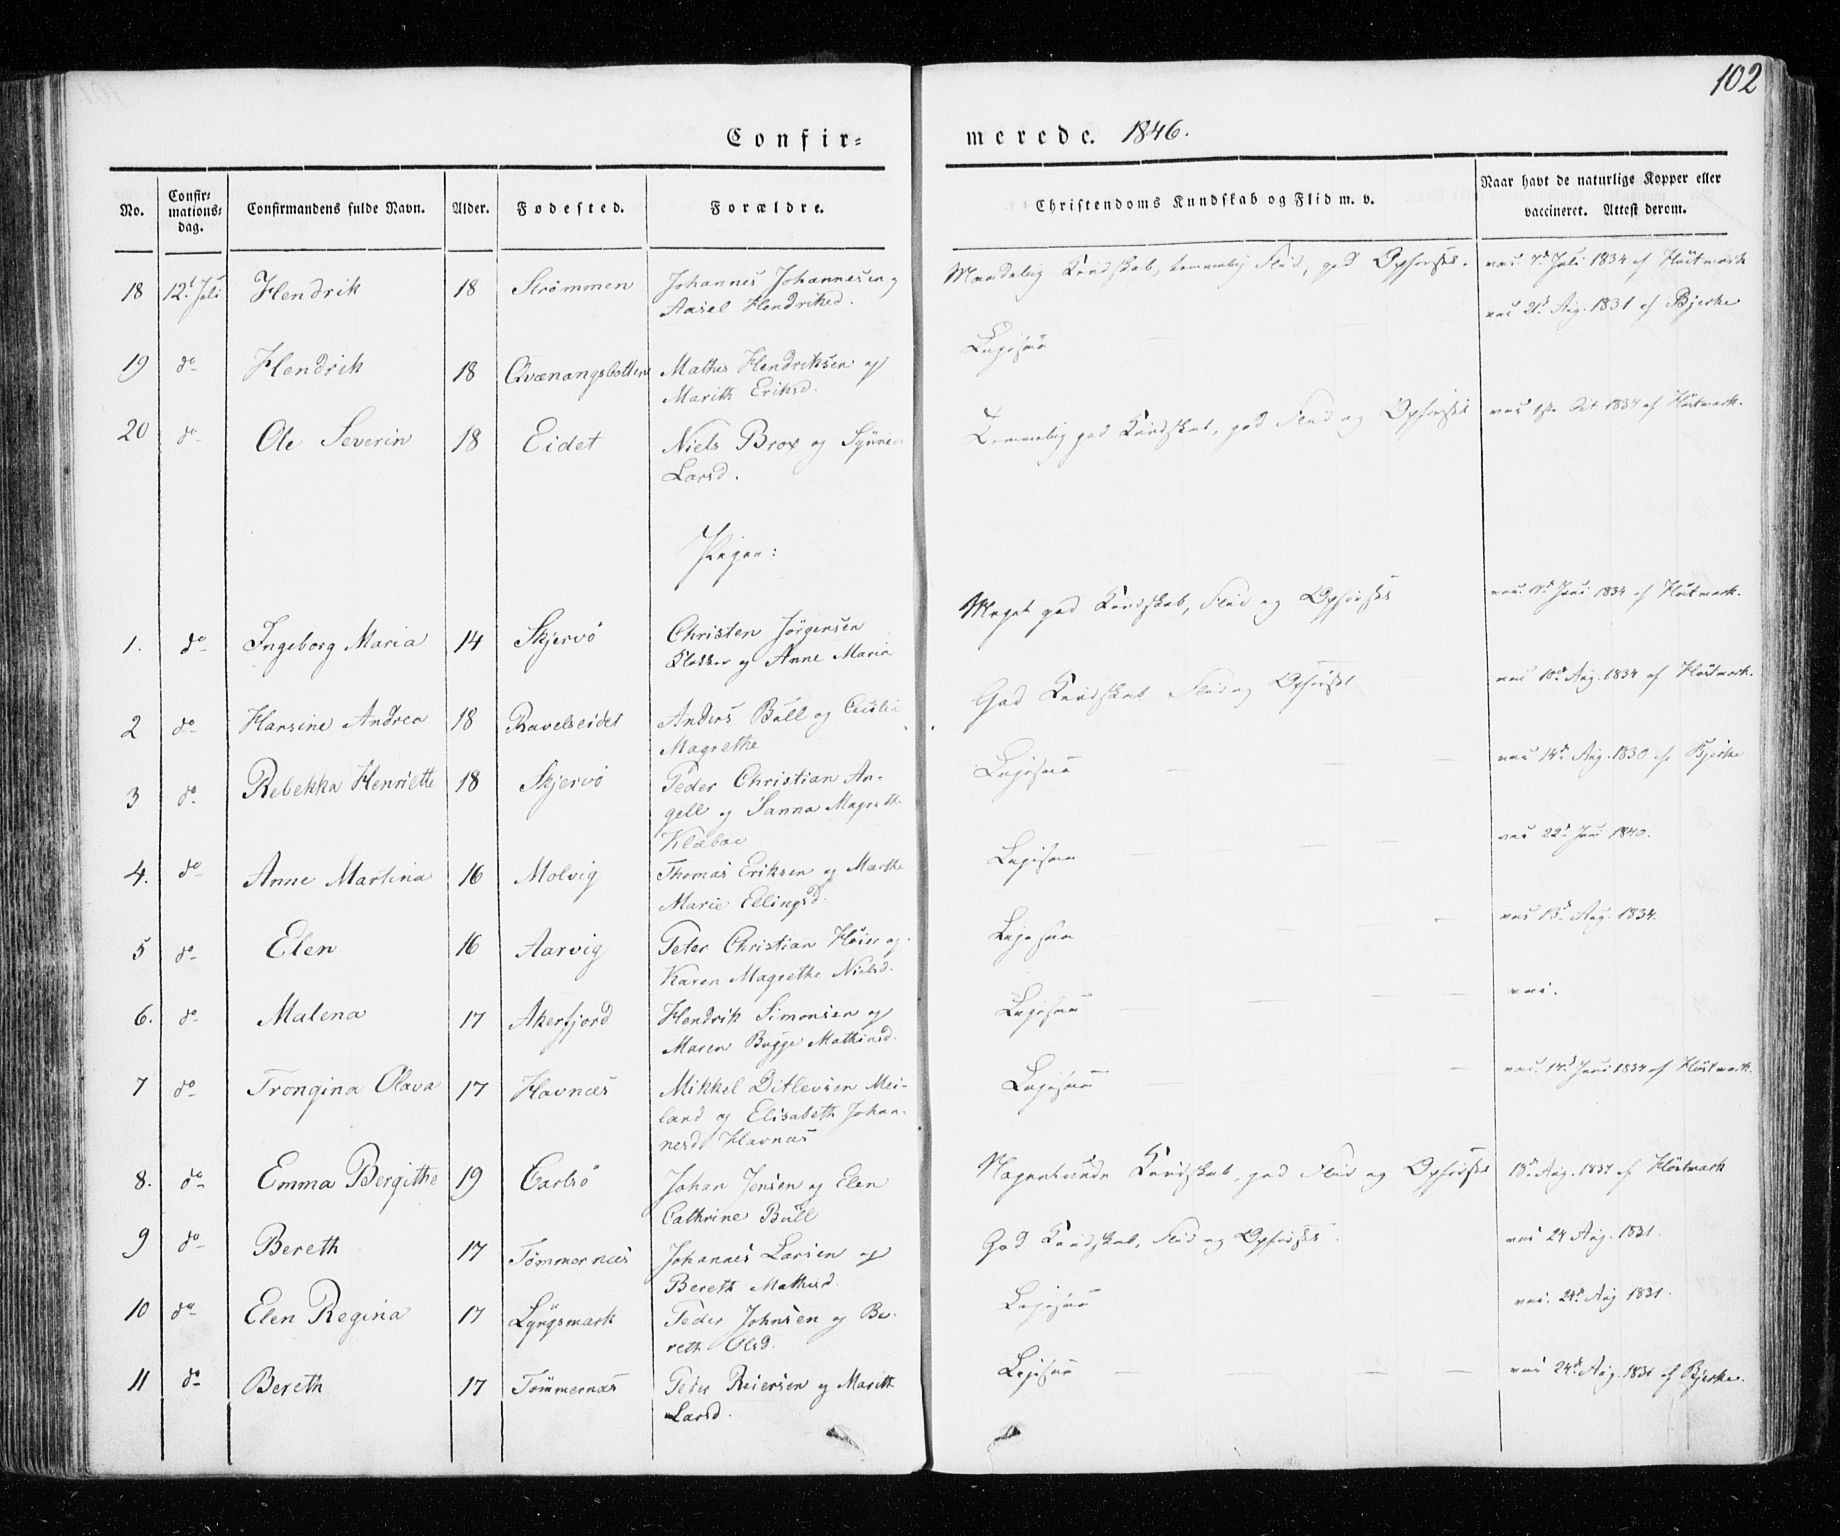 102
Confir= merede. 1846.
No. Confir= mations= dag. Confirmandens fulde Navn. Alder. Fødested. Forældre. Christendoms Kundskab og Flid m. v. Naar havt de naturlige Kopper eller vaccineret. Attest derom.
18 12t Juli Hendrik 18 Strømmen Johannes Johannesen og Maadelig Kundskab, temmelig Flid, god Opførsel. vac. 7d Juli 1834 af Høstmark
Aasel Hendriksd.
19 do Hendrik 18 Qvænangsbotten Mathis Hendriksen og Ligesaa vac 21d Aug. 1831 af Bjerke
Marith Eriksd.
20 do Ole Severin 18 Eidet Niels Brox og Temmelig god Kundskab, god Flid og Opførsel vac Oct 1834 af Høstmark.
Larsd.
Piger:
1. do Ingeborg Maria 14 Skjervö Christen Jörgensen Meget god Kundskab, Flid og Opførsel vac. Juni 1834 af Høstmark.
og Anne Maria
2 do Hansine Andrea 18 Ravelseidet Anders Bull og Cecilia God Kundskab Flid og Opførsel vac 10d Aug. 1834 af Høstmark.
Magrethe
3 do Rebekka Henriette 18 Skjervö Peder Christian An- Ligesaa vac 14d Aug. 1830 af Bjerke
gell og Sanna Magrethe
Klæboe
4. do Anne Martina 16 Molvig Thomas Eriksen og Marthe Ligesaa vac 22d Juni 1840.
Marie Ellingsd.
5 do Elen 16 Aarvig Peter Christian Høier og Ligesaa vac 13d Aug. 1834.
Karen Magrethe Nielsd.
6. do Malena 17 Akerfjord Hendrik Simonsen og Ligesaa vac.
Maren Bugge Mathiasd.
7 do Trongina Olava 17 Havnæs Mikkel Ditlevsen Mei- Ligesaa vac. 14d Juni 1834 af Høstmark.
land og Elisabeth Johan-
nesd Havnæs
8. do Emma Bergitthe 19 Carlsö Johan Jensen og Elen Nogenlunde Kundskab, god Flid og Opførsel 13d Aug. 1837 af Høstmark
Cathrine Bull
9 do Bereth 17 Tømmernæs Johannes Larsen og God Kundskab, Flid og Opførsel. vac 24 Aug. 1831.
Bereth Mathisd.
10 do Elen Regina 17 Lyngsmark Peder Johnsen og Be- Ligesaa vac. 24d Aug 1831.
reth Olsd.
11 do Bereth 17 Tømmernæs Peder Reiersen og Marith Ligesaa vac 24d Aug. 1831 af Bjerke.
Larsd.